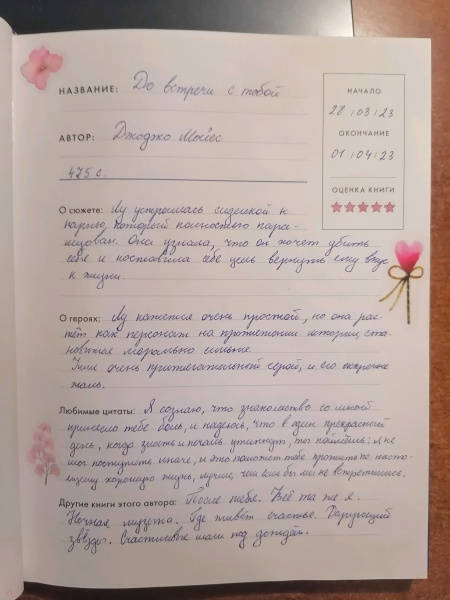 НАЗВАНИЕ: До встречи с тобой
АВТОР: Джоджо Мойес
475 с.
НАЧАЛО
28 / 03 / 23
ОКОНЧАНИЕ
01 / 04 / 23
ОЦЕНКА КНИГИ
О сюжете: Лу устроилась сиделкой к
парню, который полностью пара-
лизован. Она узнала, что он хочет убить
себя и поставила себе цель вернуть ему вкус
к жизни.
О героях: Лу кажется очень простой, но она рас-
тёт как персонаж на протяжении истории, ста-
новится морально сильнее.
Уилл очень притягательный герой, и его искренне
жаль.
Любимые цитаты: Я сознаю, что знакомство со мной
принесло тебе боль, и надеюсь, что в один прекрасный
день, когда злость и печаль утихнут, ты поймёшь: я не
мог поступить иначе, и это поможет тебе прожить по-насто-
ящему хорошую жизнь, лучше, чем если бы мы не встретились.
Другие книги этого автора: После тебя. Всё та же я.
Ночная музыка. Где живёт счастье. Дарующий
звёзды. Счастливые шаги под дождём.